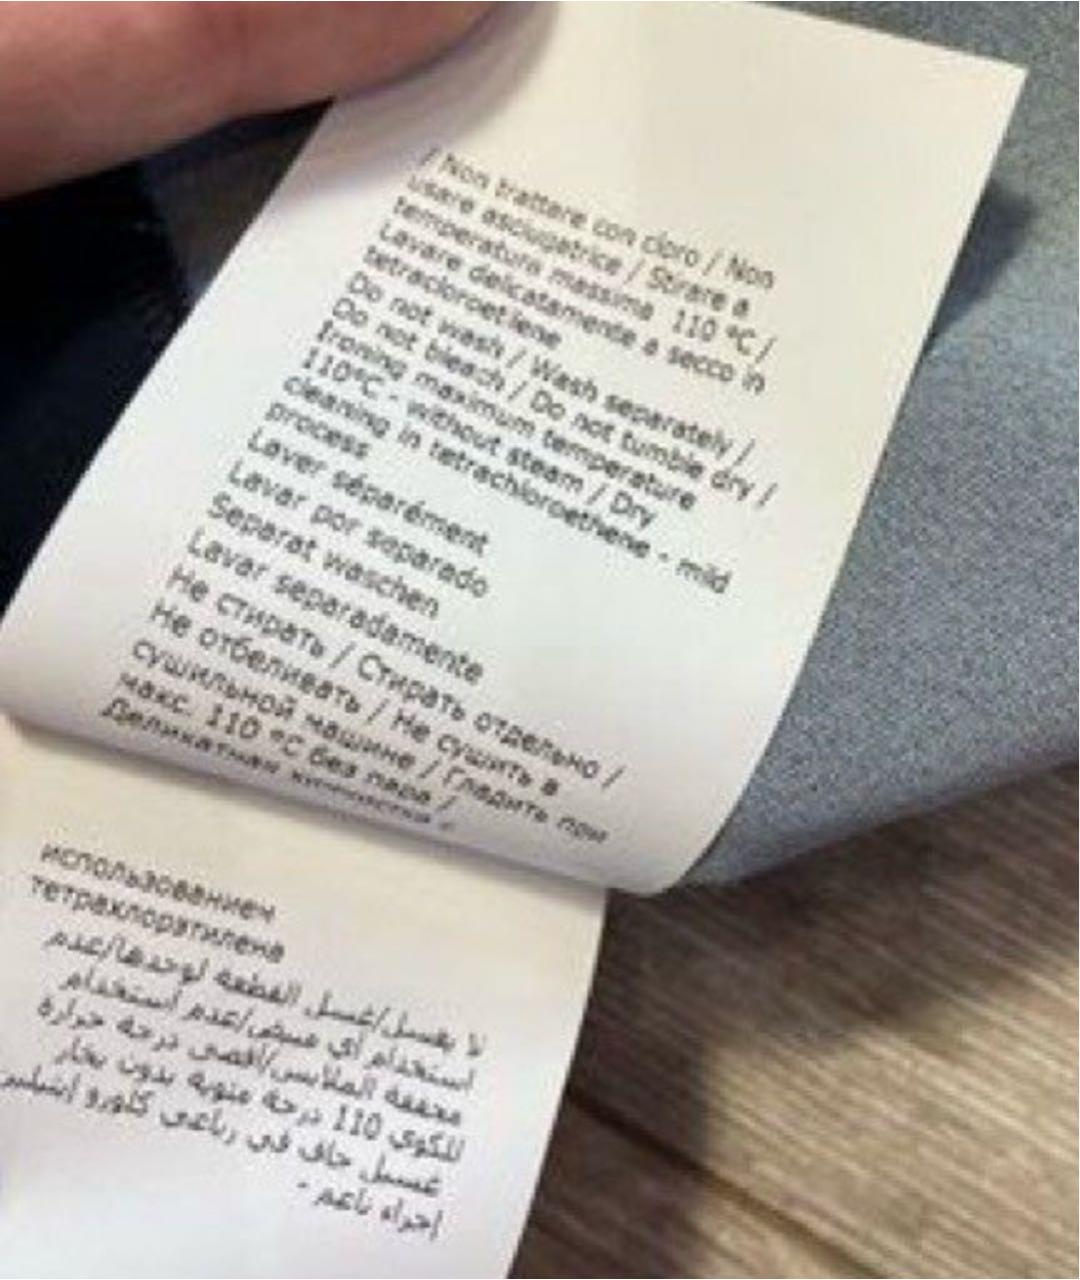 / Non trattare con cloro / Non
usare asciugatrice / Stirare a
temperatura massima 110 ºC /
Lavare delicatamente a secco in
tetracloroetilene
Do not wash / Wash separately /
Do not bleach / Do not tumble dry /
Ironing maximum temperature
110ºC - without steam / Dry
cleaning in tetrachloroethene - mild
process
Laver séparément
Lavar por separado
Separat waschen
Lavar separadamente
Не стирать / Стирать отдельно /
Не отбеливать / Не сушить в
сушильной машине / Гладить при
макс. 110 ºC без пара /
Деликатная химчистка с
использованием
тетрахлорэтилена
لا يغسل/غسل القطعة لوحدها/عدم
استخدام أي مبيض/عدم استخدام
مجففة الملابس/أقصى درجة حرارة
للكوي 110 درجة مئوية بدون بخار
غسيل جاف في رباعي كلورو إيثيلين
إجراء ناعم -